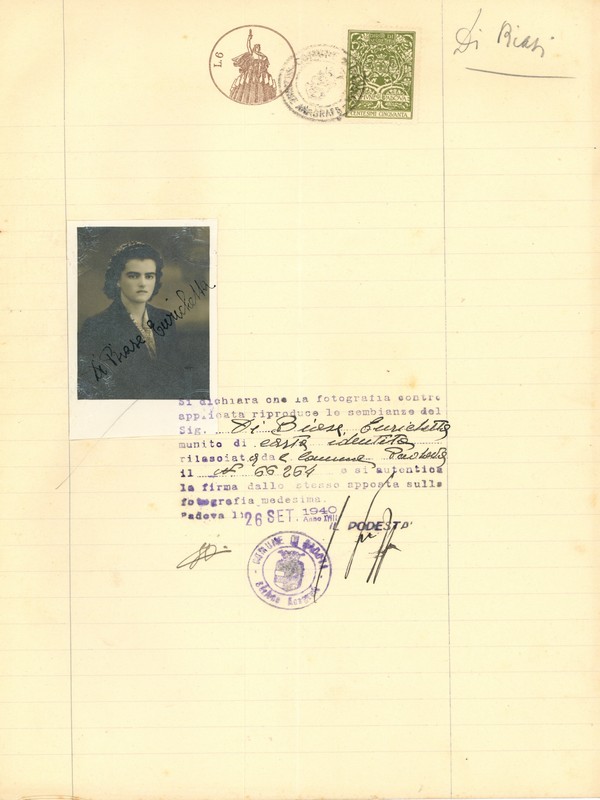 Di Biasi
L 6
ANAGRAFE
CENTESIMI CINQUANTA
Di Biase Enrichetta
Si dichiara che la fotografia contro
applicata riproduce le sembianze del
Sig. Di Biase Enrichetta
munito di carta identità
rilasciata dal Comune Padova
il N° 66264 e si autentica
la firma dallo stesso apposta sulla
fotografia medesima.
Padova li 26 SET. 1940
Anno XVIII
IL PODESTA'
COMUNE DI PADOVA